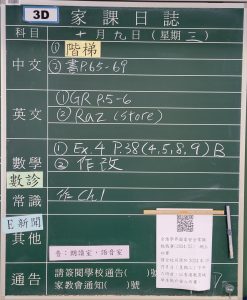 3D
家課日誌
科目 十月九日(星期三)
① 階梯
中文 ② 書P.65-69
① GR P.5-6
英文 ② Raz (Store)
① Ex.4 P.38(4,5,8,9) B
數學 ② 作改
數診
常識 作Ch1
E新聞
其他
音:朗讀室、語音室
通告 請簽閱學校通告( )號
家教會通知( )號